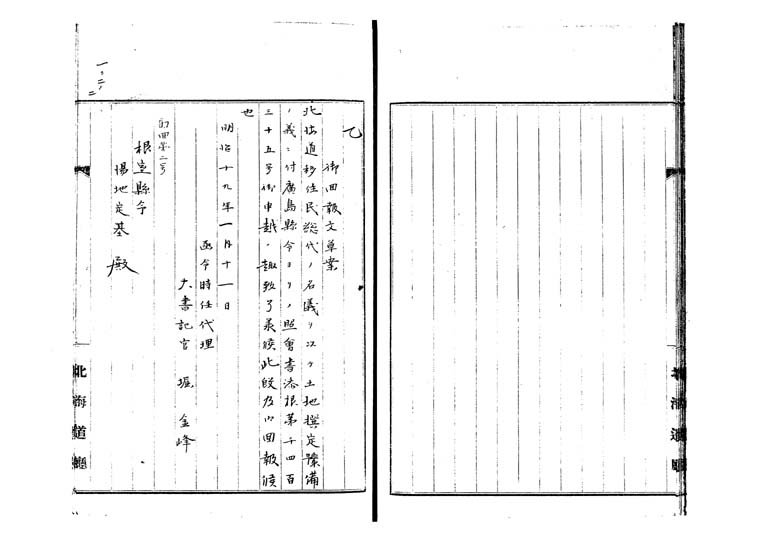 乙
御回報文草案
北海道移住民総代ノ名儀ヲ以テ土地撰定予備
ノ義ニ付廣島縣令ヨリノ照會書添根第千四百
三十五号御申越ノ趣致了承候此段及御回報候
也
明治十九年一月十一日
函令時任代理
大書記官 堀金峰
第二号
根室縣令
湯地定基 殿
北海道廳
北海道廳